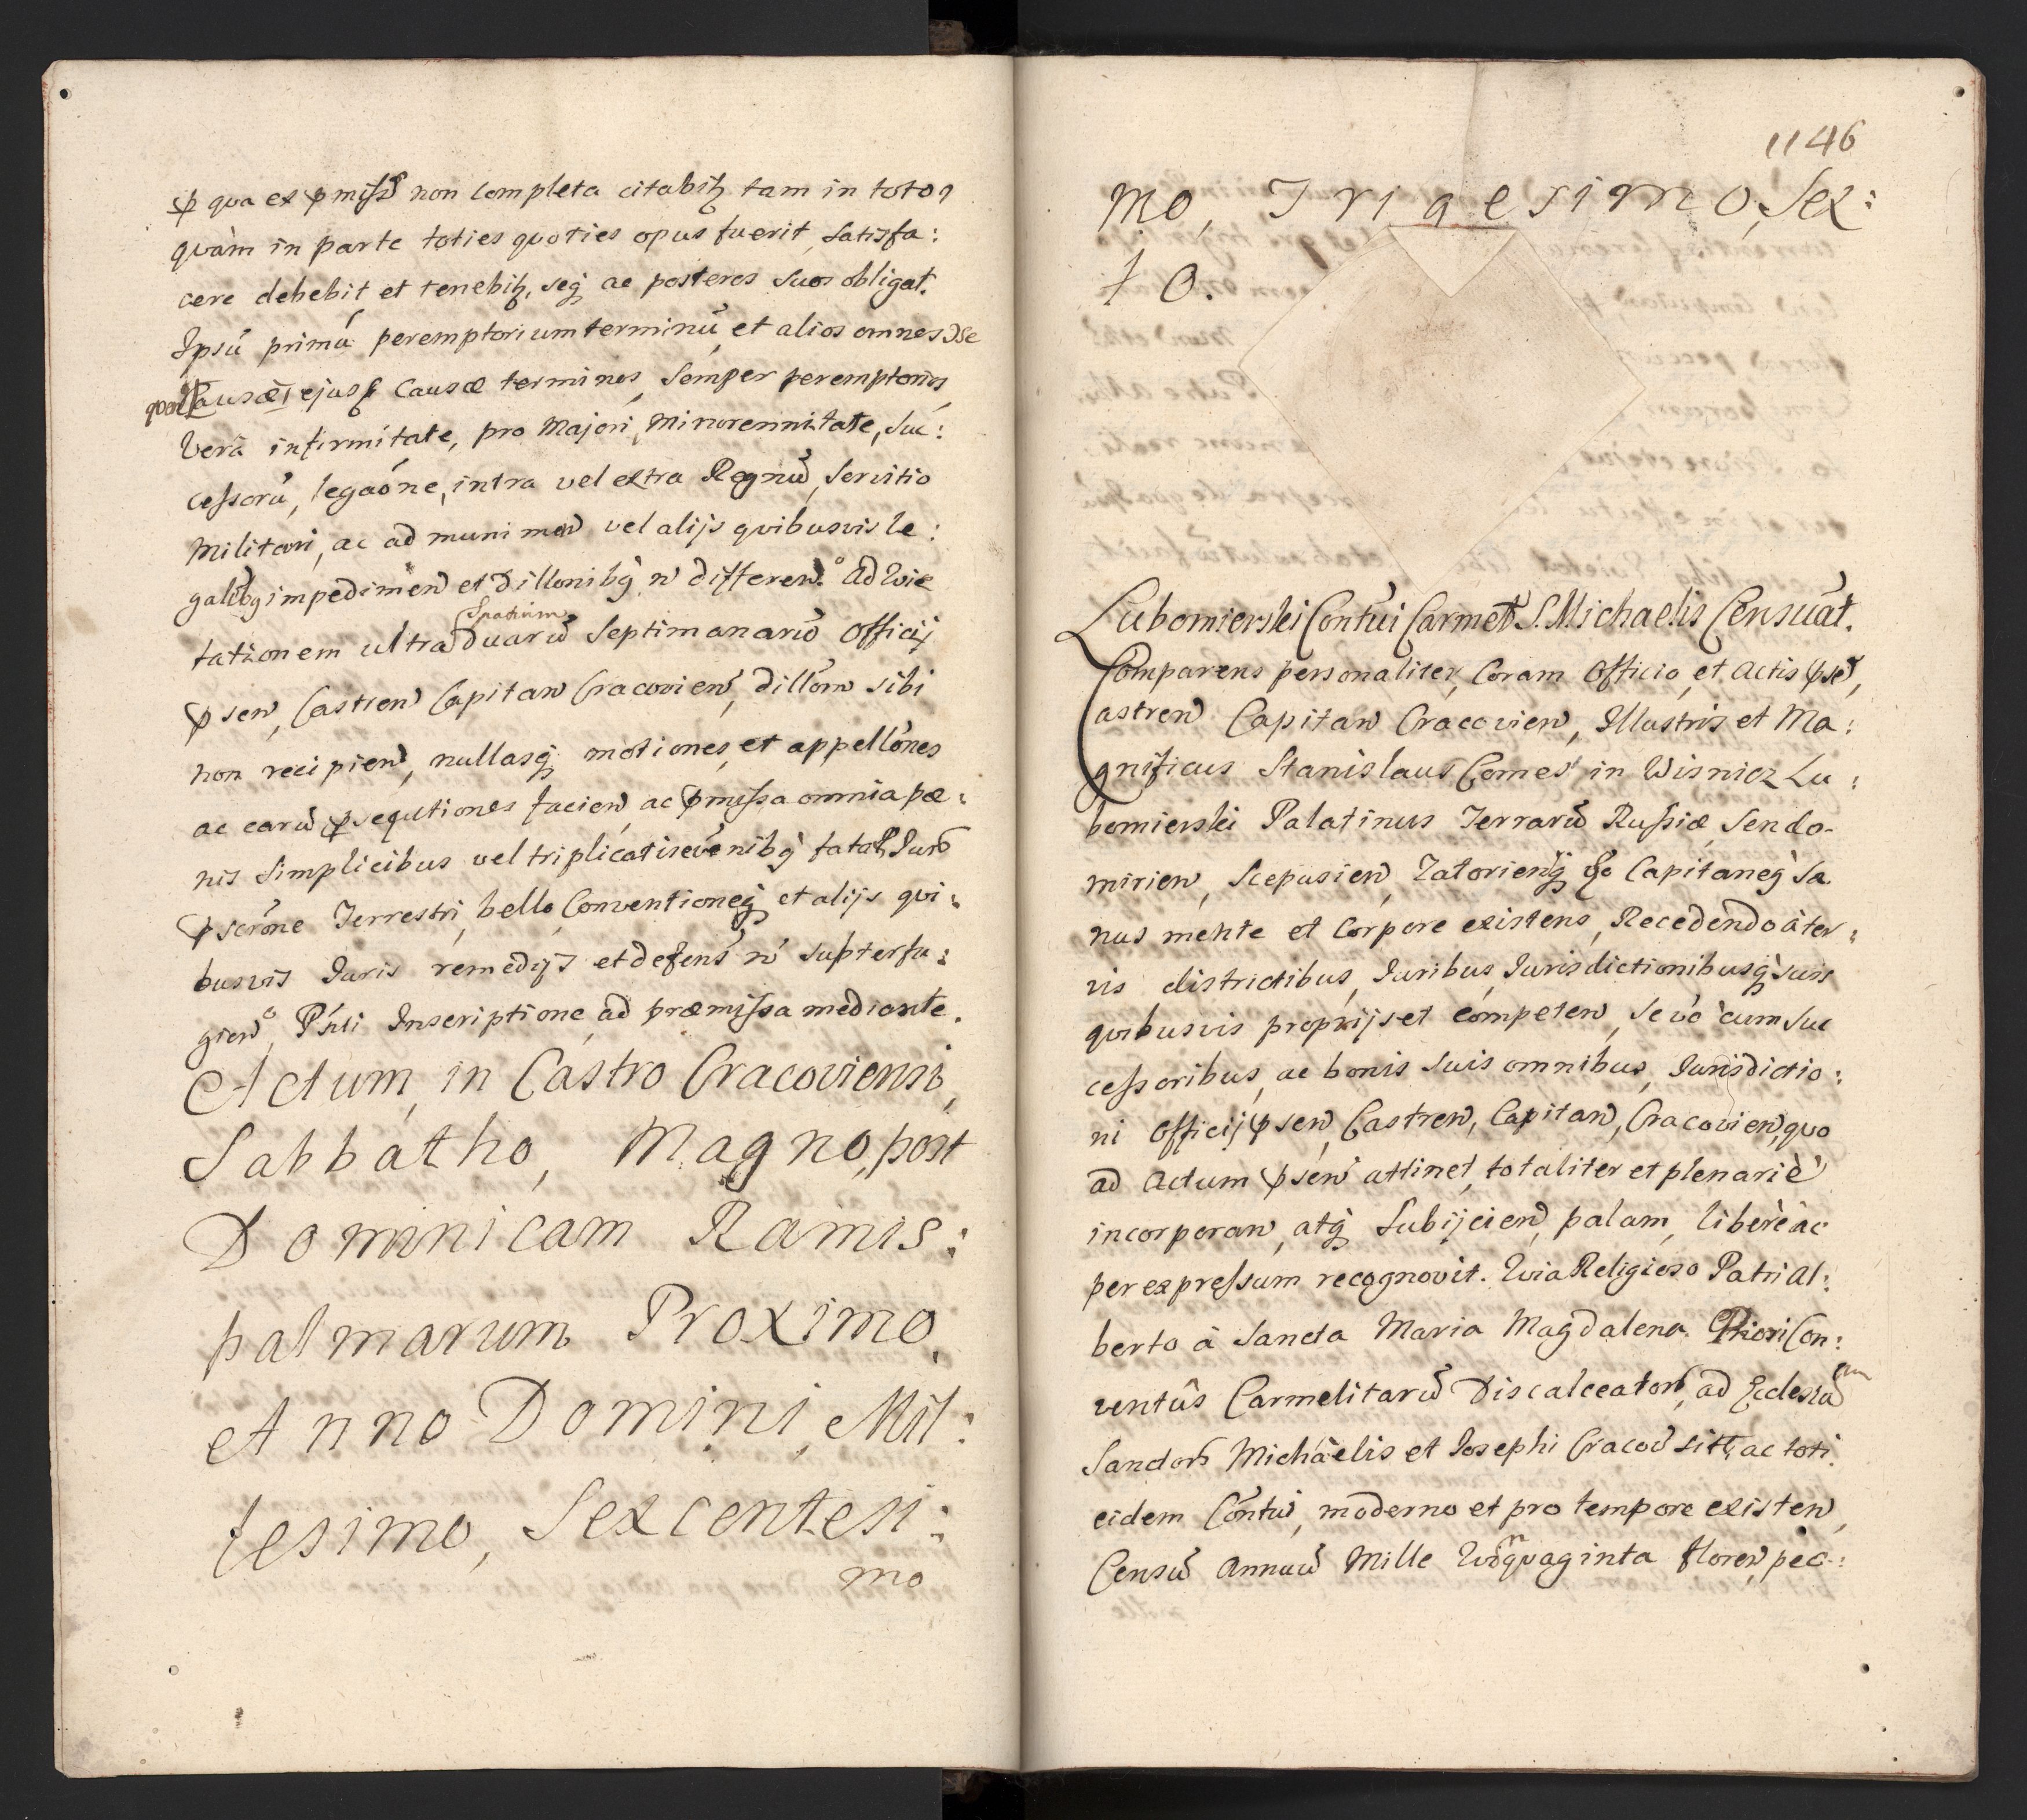 ꝓ qua ex pmissꝭ non completa citabitꝫ tam in toto,
quàm in parte toties quoties opus fuerit, satisfa:
cere debebit et tenebitꝫ, seqꝫ ac posteros suos obligat.
Ipsũ primũ peremptorium terminũ, et alios omnes
causæ, ejusꝗ causæ terminos, semper peremptorios
Verâ infirmitate, pro Majori, Minorennitate, suc:
cessorũ, legaóne, intra vel extra Regnũ, servitio
Militari, ac ad munimen̄ vel alijs quibusvis le:
galibꝗ impedimen̄ et dillonibꝗ n̄ differen̄. Ad Qvie
tationem ultra Spatium duarũ Septimanarũ Officij
p̄sen̄, Castren̄ Capitan̄ Cracovien̄, dillóm̄ sibi
non recipien̄, nullasqꝫ motiones, et appellónes
ac earũ ꝓsequtiones facien̄, ac p̄missa omnia pæ:
nis simplicibus vel triplicatis
p̄scróne Terrestri, bello, Conventioneqꝫ et alijs qui:
busvis Juris remedijs et defens̄ n̄ supterfu:
gien̄, Pn̄ti Inscriptione ad præmissa mediante.
Actum, in Castro Cracoviensi,
Sabbatho, Magno, post
Dominicam Ramis:
palmarum Proximo,
Anno Domini, Mil:
lesimo, Sexcentesi:
mo
1146
mo, Trigesimo, Sex:
to.
Lubomierski Con̄tui Carmet̄ S. Michaelis Censuat.
Comparens personaliter, Coram Officio, et Actis p̄sen̄,
Castren̄ Capitan̄ Cracovien̄, Illustris et Ma:
gnificus Stanislaus Comes in Wisnicz Lu:
bomierski Palatinus Terrarũ Russiæ, Sendo-
mirien̄, Scepusien̄, Zatorien̄qꝫ &c Capitaneꝗ Sa
nus mente et Corpore existens, Recedendo à ter:
ris districtibus, Juribus, Jurisdictionibusqꝫ suis
quibusvis proprijs et competen̄, se v̄o cum suc
cessoribus, ac bonis suis omnibus, Jurisdictio:
ni Officij p̄sen̄, Castren̄, Capitan̄, Cracovien̄, quo
ad Actum p̄sen̄ attinet, totaliter et plenariè
incorporan̄, atqꝫ Subijcien̄, palam, liberè ac
per expressum recognovit. Qvia Religioso Patri Al:
berto à Sancta Maria Magdalena, Priori Con:
ventûs Carmelitarũ Discalceatorꝫ, ad Ecclesiam
Sanctorꝫ Michäelis et Josephi Cracov̄ sitꝫ, ac toti
eidem Con̄tui, moderno et pro tempore existen̄,
Censũ Annuũ Mille Qvinquaginta floren̄, pec: